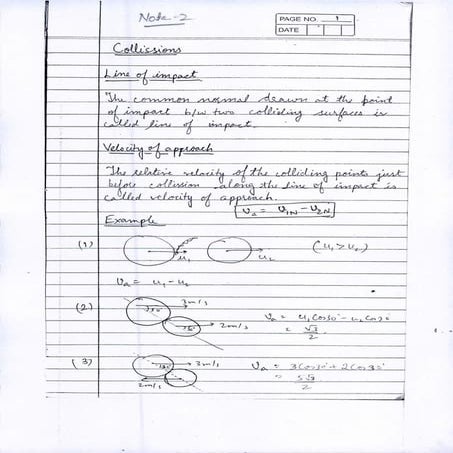 Note-2
PAGE NO. 1
DATE
Collissions
Line of impact
The common normal drawn at the point
of impact b/w two colliding surfaces is
called line of impact.
Velocity of approach
The relative velocity of the colliding points just
before collision along the line of impact is
called velocity of approach.
Va = U1N - U2N
Example
(1) u1 u2 (u1 > u2)
Va = u1 - u2
(2) 30° 3m/s
30° 2m/s
Va = u1 Cos30° - u2 Cos30°
= √3/2
(3) 30° 3m/s
2m/s
Va = 3 Cos30° + 2 Cos30°
= 5√3/2